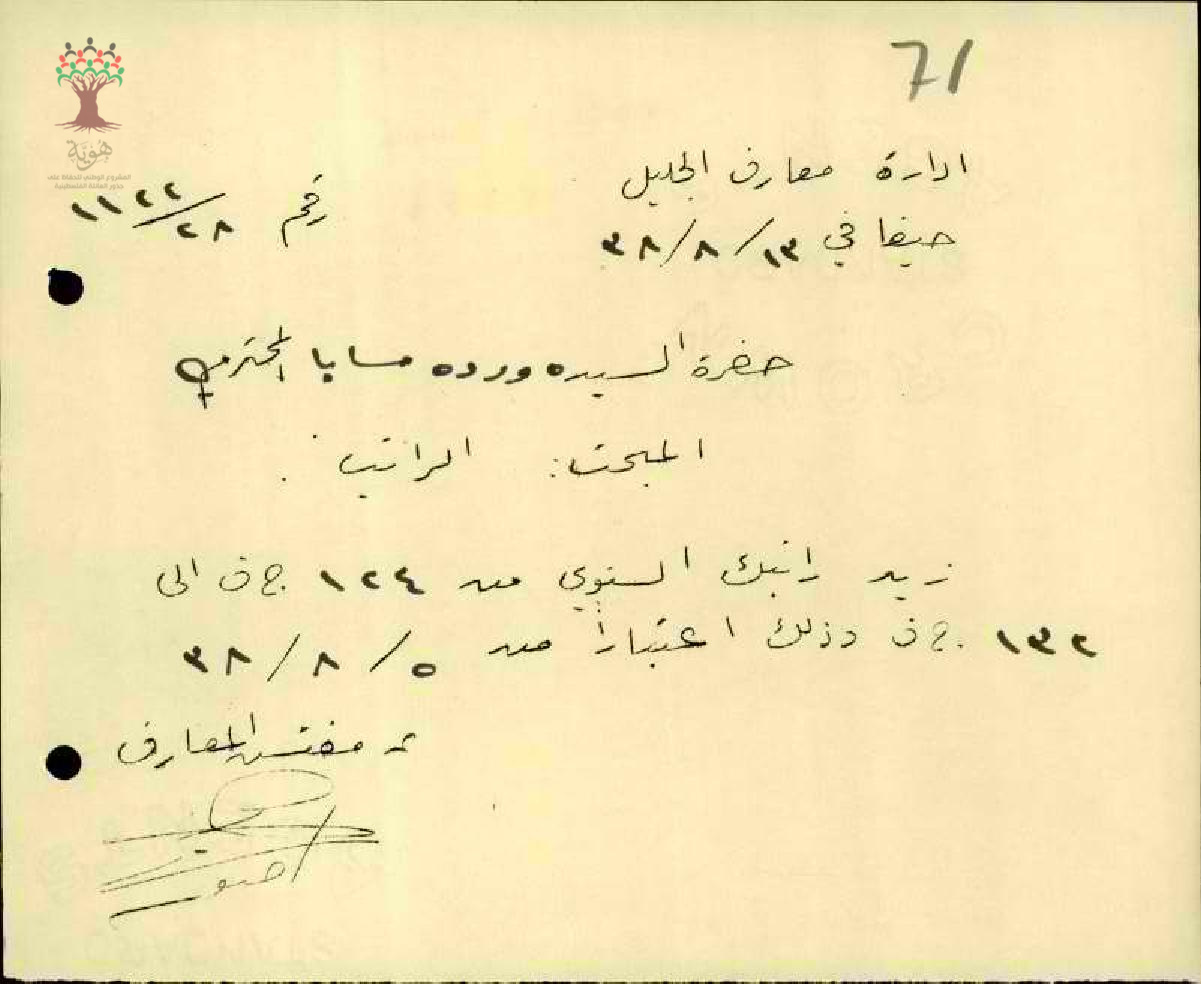 71
هوية
المشروع الوطني للحفاظ على
جذور العائلة الفلسطينية
ادارة معارف الجليل
رقم ١١٢٢/٢٨
حيفا في ١٣/٨/٣٨
حضرة السيده ورده سابا المحترمه
المبحث: الراتب.
زيد راتبك السنوي من ١٢٤ ج ف الى
١٣٢ ج ف وذلك اعتباراً من ٥/٨/٣٨
عن مفتش المعارف